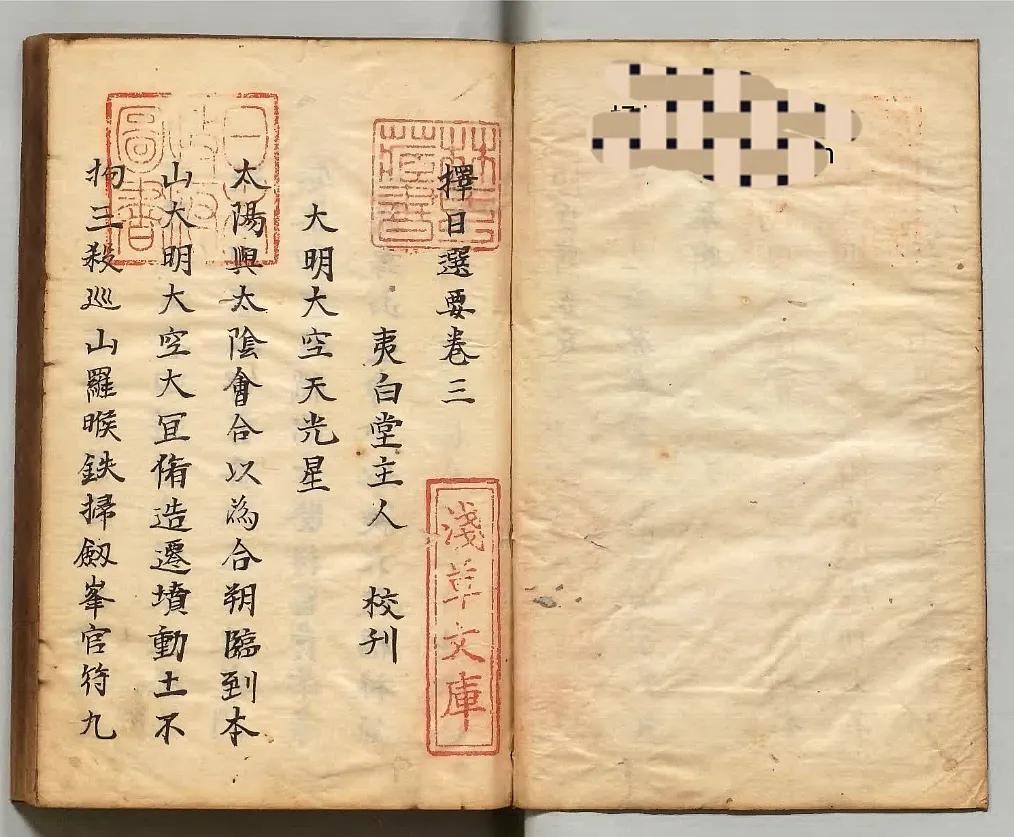 擇日選要卷三
夷白堂主人　校刋
大明大空天光星
太陽與太陰會合以為合朔臨到本
山大明大空大冝脩造遷墳動土不
拘三殺巡山羅睺鉄掃劔峯官符九
林氏藏書
淺草文庫
日本政府圖書